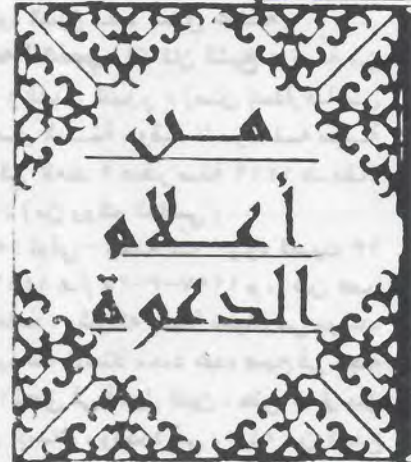 من
أعلام
الدعوة